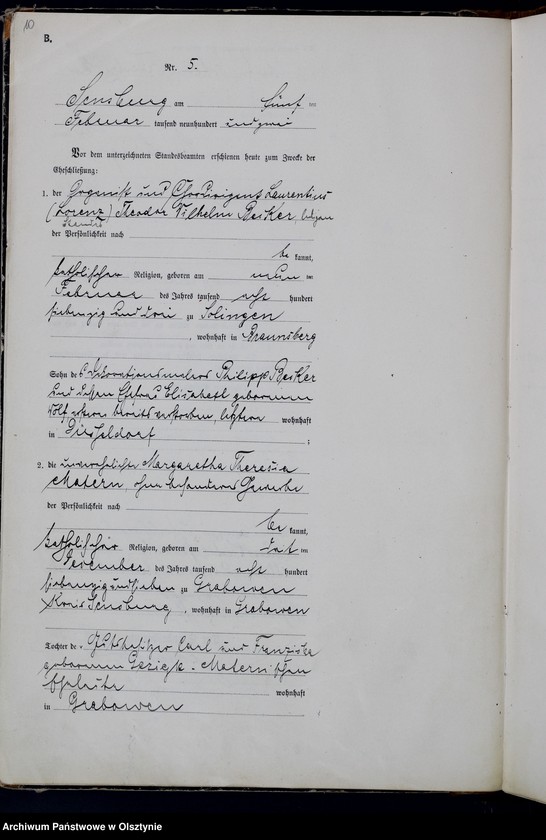 10
B.
Nr. 5.
Sensburg am fünf ten
Februar tausend neunhundert und zwei
Vor dem unterzeichneten Standesbeamten erschienen heute zum Zwecke der
Eheschließung:
1. der Organist und Chordirigent Laurentius
(Lorenz) Theodor Wilhelm Becker,
der Persönlichkeit nach
be kannt,
katholischer Religion, geboren am neun ten
Februar des Jahres tausend acht hundert
siebenzig und drei zu Solingen
, wohnhaft in Braunsberg
Sohn des Dekorationsmalers Philipp Becker
und dessen Ehefrau Elisabeth geborenen
Wolf, ersterer bereits verstorben, letztere wohnhaft
in Düsseldorf ;
2. die unverehelichte Margaretha Theresia
Matern, ohne besonderes Gewerbe
der Persönlichkeit nach
be kannt,
katholischer Religion, geboren am ten
des Jahres tausend acht hundert
siebenzig und sieben zu Grabowen
Kreis Sensburg, wohnhaft in Grabowen
Tochter der Gutsbesitzer Carl und Franziska
geborenen - Matern'schen
Eheleute wohnhaft
in Grabowen
Archiwum Państwowe w Olsztynie